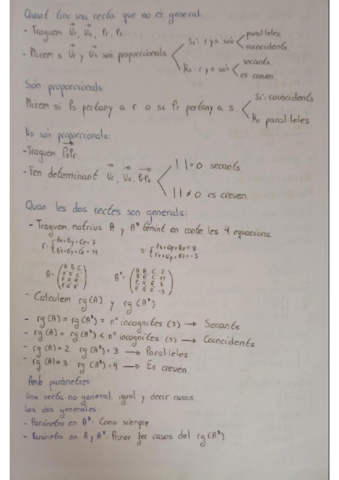 Quant tinc una recta que no es general:
- Traguem Ur, Us, Pr, Ps
- Mirem si Ur y Us són proporcionals
Si: r y s són
paral·leles
coincidents.
No: r y s són
secants
es creuen.
Són proporcionals
Mirem si Ps pertany a r o si Pr pertany a s
Si: coincidents
No paral·leles
No són proporcionals:
- Traguem PsPr
- Fem determinant Ur, Us, PrPs
| | = 0 secants.
| | ≠ 0 es creuen.
Quan les dos rectes són generals:
- Traguem matrius A y A* tenint en conte les 4 equacions.
A=
A*=
- Calculem rg(A) y rg(A*)
- rg(A) = rg(A*) = nº incognites (3) → Secants
- rg(A) = rg(A*) < nº incognites (3) → Coincidents
- rg(A)=2 rg(A*)=3 → Paral·leles
- rg(A)=3 rg(A*)=4 → Es creuen.
Amb parámetres
Una recta no general: igual y decir casos.
Las dos generales:
- Parámetro en A*: Como siempre
- Parámetro en A y A*: Poner per casos del rg(A*)